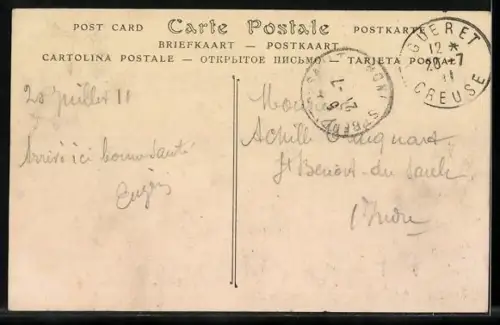 POST CARD Carte Postale POSTKARTE
BRIEFKAART — POSTKAART
CARTOLINA POSTALE — ОТКРЫТОЕ ПИСЬМО — TARJETA POSTAL
GUERET
12 *
20 - 7
11
CREUSE
21 - 7
20 Juillet 11
Arrivé ici bonne santé
Monsieur
Achille
St Benoit-du Sault
Indre